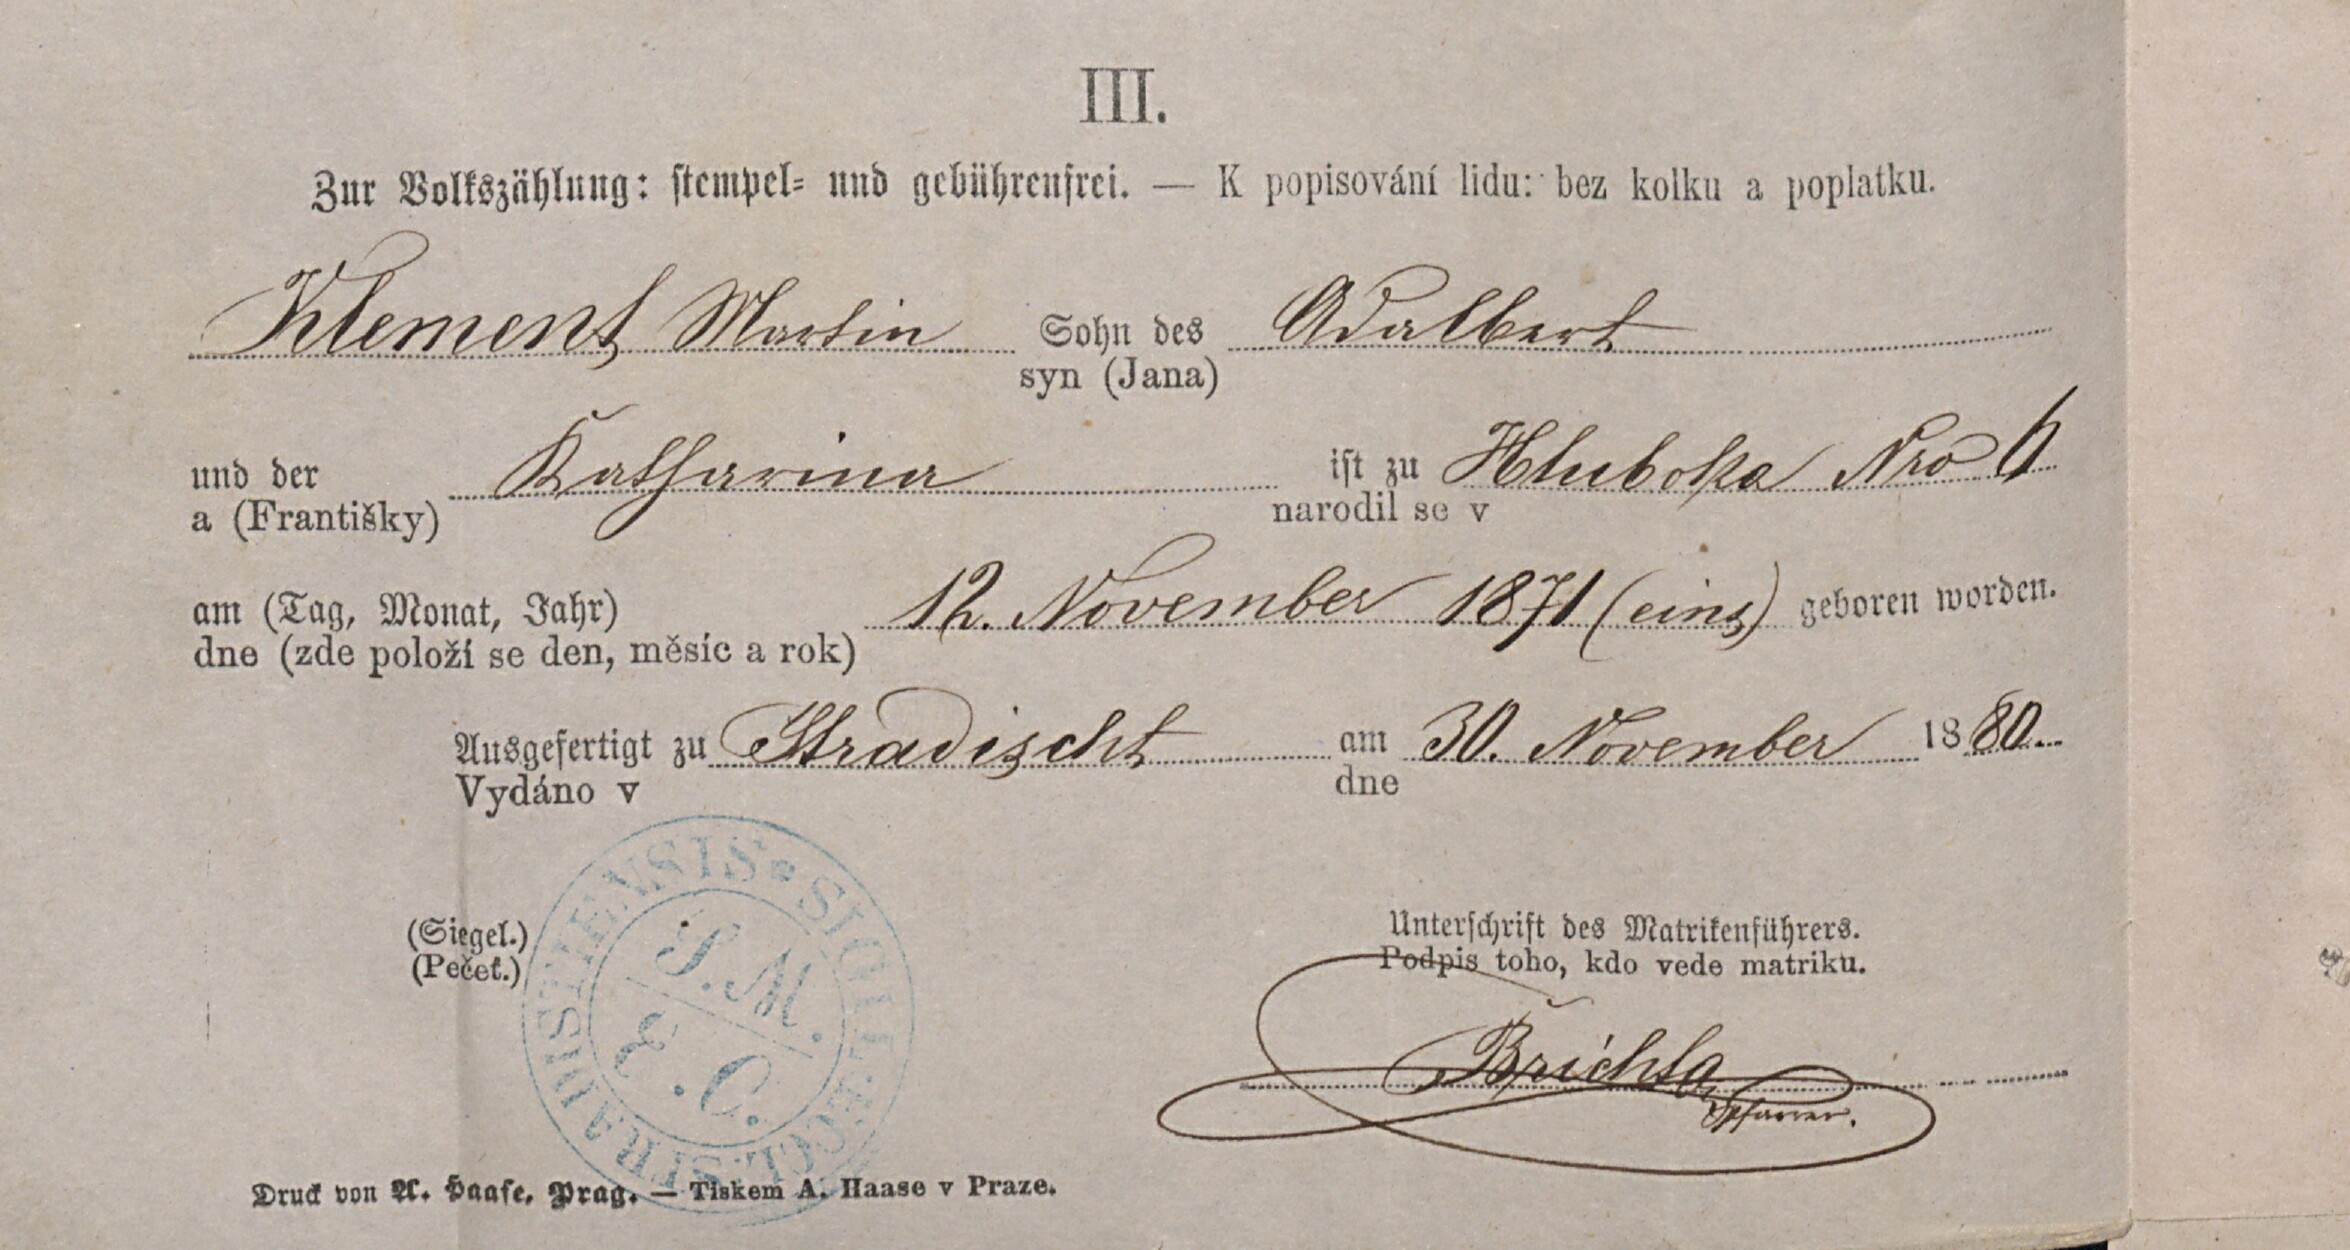 III.
Zur Volkszählung: stempel= und gebührenfrei. — K popisování lidu: bez kolku a poplatku.
Klement Martin Sohn des Adalbert
syn (Jana)
und der Katharina ist zu Hluboka Nro 6
a (Františky) narodil se v
am (Tag, Monat, Jahr) 12. November 1871 (eins) geboren worden.
dne (zde položí se den, měsíc a rok)
Ausgefertigt zu Stradischt am 30. November 1880.
Vydáno v dne
SIGILL. ECCL. STRADISTIENSIS
S. M.
E. C.
(Siegel.)
(Pečeť.)
Unterschrift des Matrikenführers.
Podpis toho, kdo vede matriku.
Břichta
Pfarrer.
Druck von A. Haase, Prag. — Tiskem A. Haase v Praze.